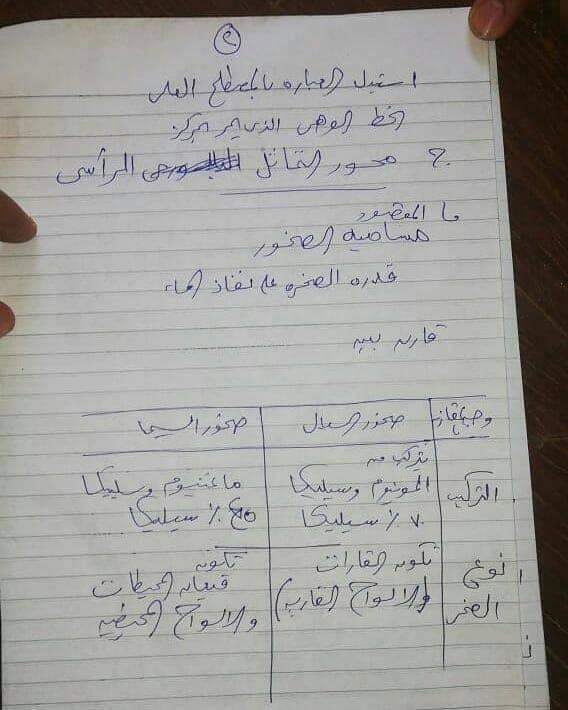 ٩
استبدل العباره بالمصطلح العلمى
الخط الوهمى الذى يمر بالمركز
ج محور التماثل الرأسى
ما المقصود
مساميه الصخور
قدره الصخره على نفاذ الماء
قارن بين
وجه المقارنه صخور السيال صخور السيما
التركيب تتركب من الومنيوم وسيليكا ٧٠٪ سيليكا ماغنسيوم وسيليكا ٤٥٪ سيليكا
نوع الصخر تكون القارات والالواح القاريه تكون قيعان المحيطات والالواح المحيطيه